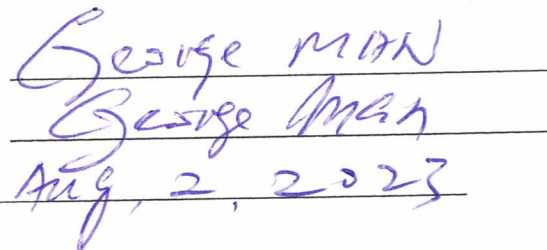 George MAN
George Man
Aug, 2, 2023